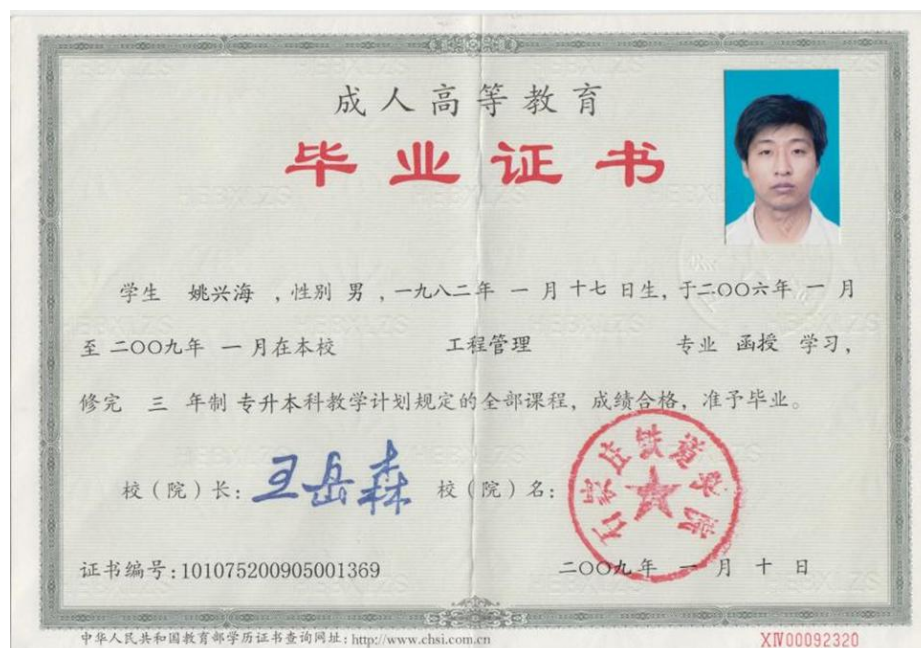 成人高等教育
毕业证书
学生 姚兴海 ,性别 男 ,一九八二年 一 月 十七 日生, 于二〇〇六年 一 月
至 二〇〇九年 一 月在本校 工程管理 专业 函授 学习,
修完 三 年制 专升本科教学计划规定的全部课程, 成绩合格, 准予毕业。
校(院)长: 王岳森 校(院)名:
石家庄铁道学院
证书编号:101075200905001369 二〇〇九年 一 月 十 日
中华人民共和国教育部学历证书查询网址: http://www.chsi.com.cn XIV00092320